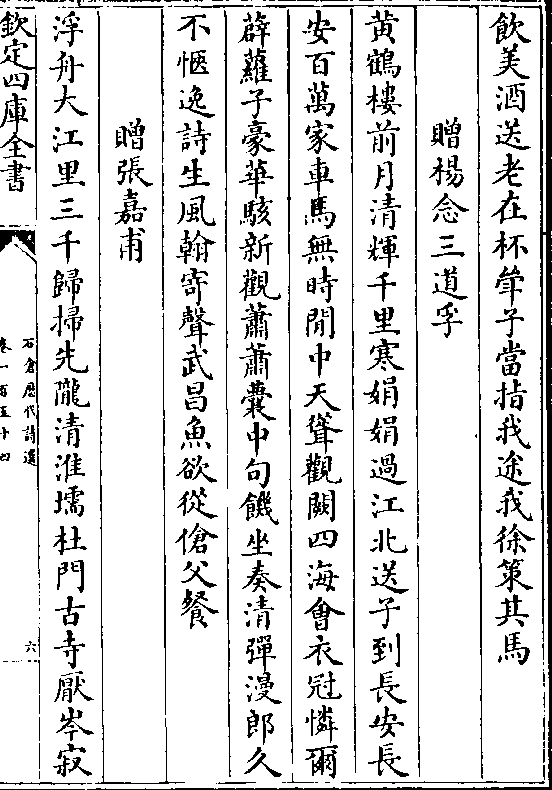 飲美酒送老在杯斝子當指我途我徐策其馬
贈楊念三道孚
黄鶴樓前月清輝千里寒娟娟過江北送子到長安長
安百萬家車馬無時閒中天聳觀闕四海會衣冠憐爾
薜蘿子豪華駭新觀蕭蕭囊中句饑坐奏清彈漫郎久
不愜逸詩生風翰寄聲武昌魚欲從傖父餐
贈張嘉甫
浮舟大江里三千歸掃先隴清淮壖杜門古寺厭岑寂
欽定四庫全書
石倉歴代詩選
卷一百五十四
六